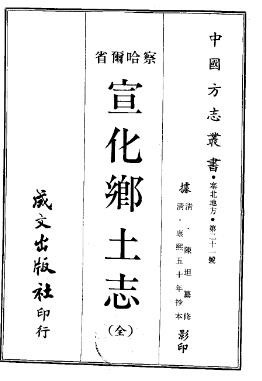 中國方志叢書・塞北地方・第二十一號
據清・陳坦纂修
清・康熙五十年抄本影印
察哈爾省
宣化鄉土志
(全)
成文出版社印行